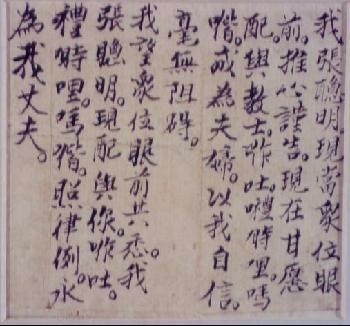 我張聰明。現當衆位眼
前。推心謹告。現在甘愿
配與教士。吥吐。嘪時哩。嗎
喈。成為夫婦。以我自信。
毫無阻碍。
我望衆位眼前共悉。我
張聰明。現配與你。吥吐。
禮時哩。嗎喈。照律例。永
為我丈夫。